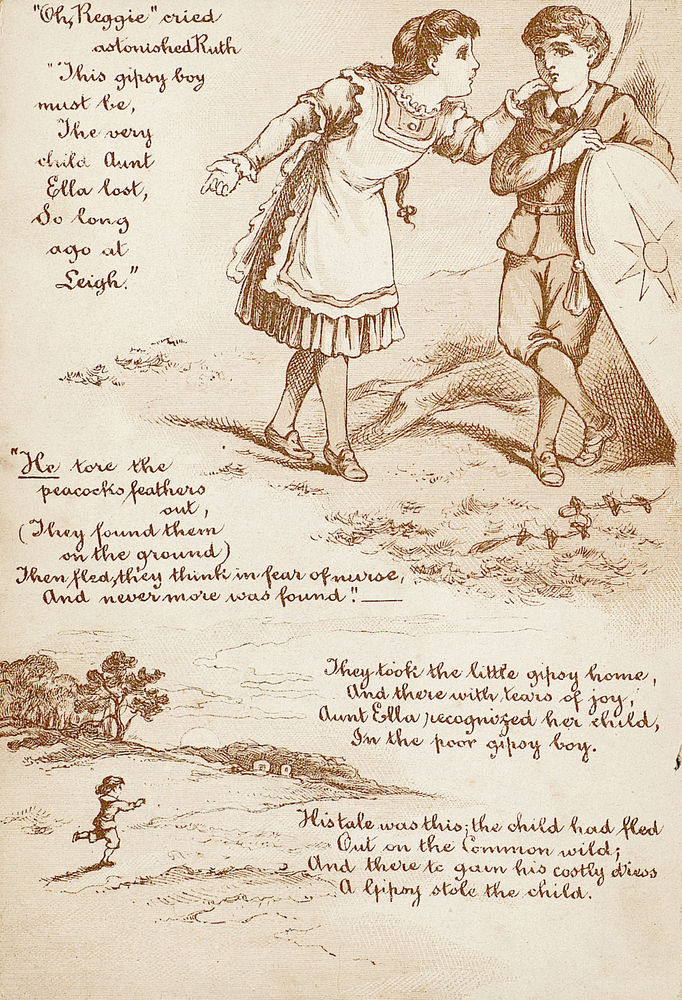 "Oh, Reggie" cried
astonished Ruth
"This gipsy boy
must be,
The very
child Aunt
Ella lost,
So long
ago at
Leigh."
"He tore the
peacocks feathers
out,
(They found them
on the ground)
Then fled, they think in fear of nurse,
And never more was found".—
They took the little gipsy home,
And there with tears of joy,
Aunt Ella, recognized her child,
In the poor gipsy boy.
His tale was this; the child had fled
Out on the Common wild;
And there to gain his costly dress
A Gipsy stole the child.